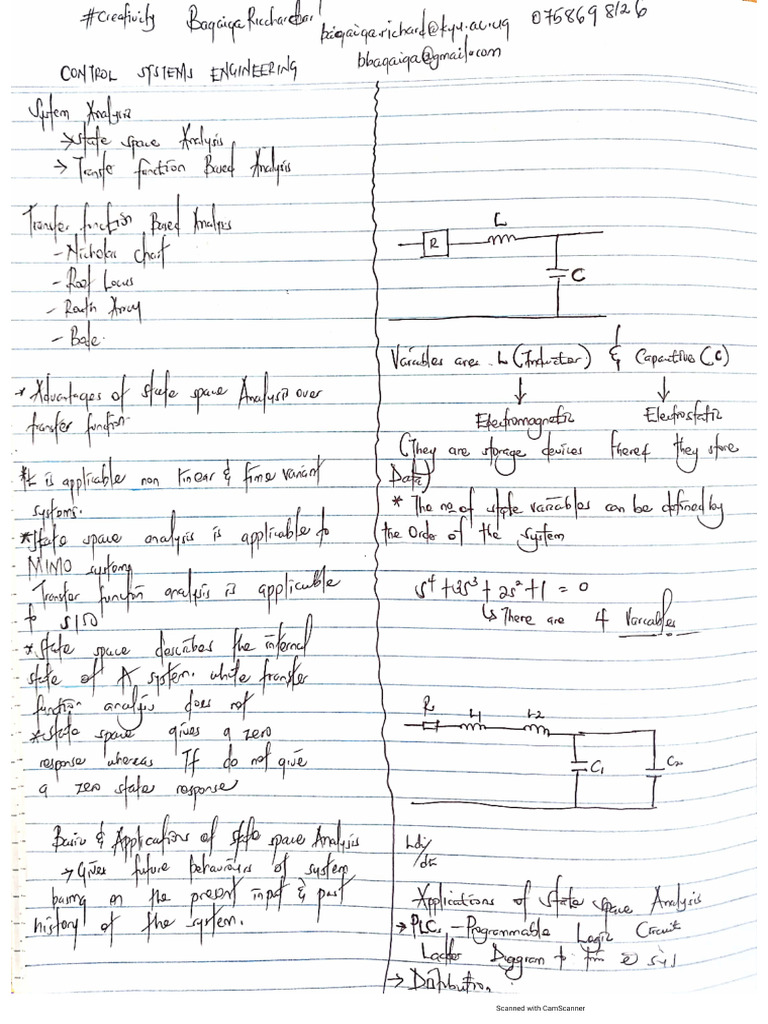 #Creativity Bagaiga Ricchardbar! bagaiga.richard@kyu.ac.ug 0758698126
bbagaiga@gmail.com
CONTROL SYSTEMS ENGINEERING
System Analysis
→ state space Analysis
→ Transfer function Based Analysis
Transfer function Based Analysis
- Nicholas chart
- Root Locus
- Routh Array
- Bode.
* Advantages of state space Analysis over
transfer function.
*It is applicable non linear & time variant
systems.
*State space analysis is applicable to
MIMO systems
Transfer function analysis is applicable
to SISO
*State space describes the internal
state of A system. while transfer
function analysis does not
*State space gives a zero
response whereas TF do not give
a zero state response
Basic & Applications of state space Analysis
→ Gives future behaviours of system
basing on the present input & past
history of the system.
R L
C
Variables are - L (Inductor) & Capacitive (C)
↓ ↓
Electromagnetic Electrostatic
(They are storage devices theref they store
Data)
* The no of state variables can be defined by
the Order of the system
s⁴ + 3s³ + 2s² + 1 = 0
↳ There are 4 Variables
R L1 L2
C1 C2
Ldi/dt
Applications of state space Analysis
→ PLCs - Programmable Logic Circuit
Ladder Diagram
→ Distribution.
Scanned with CamScanner